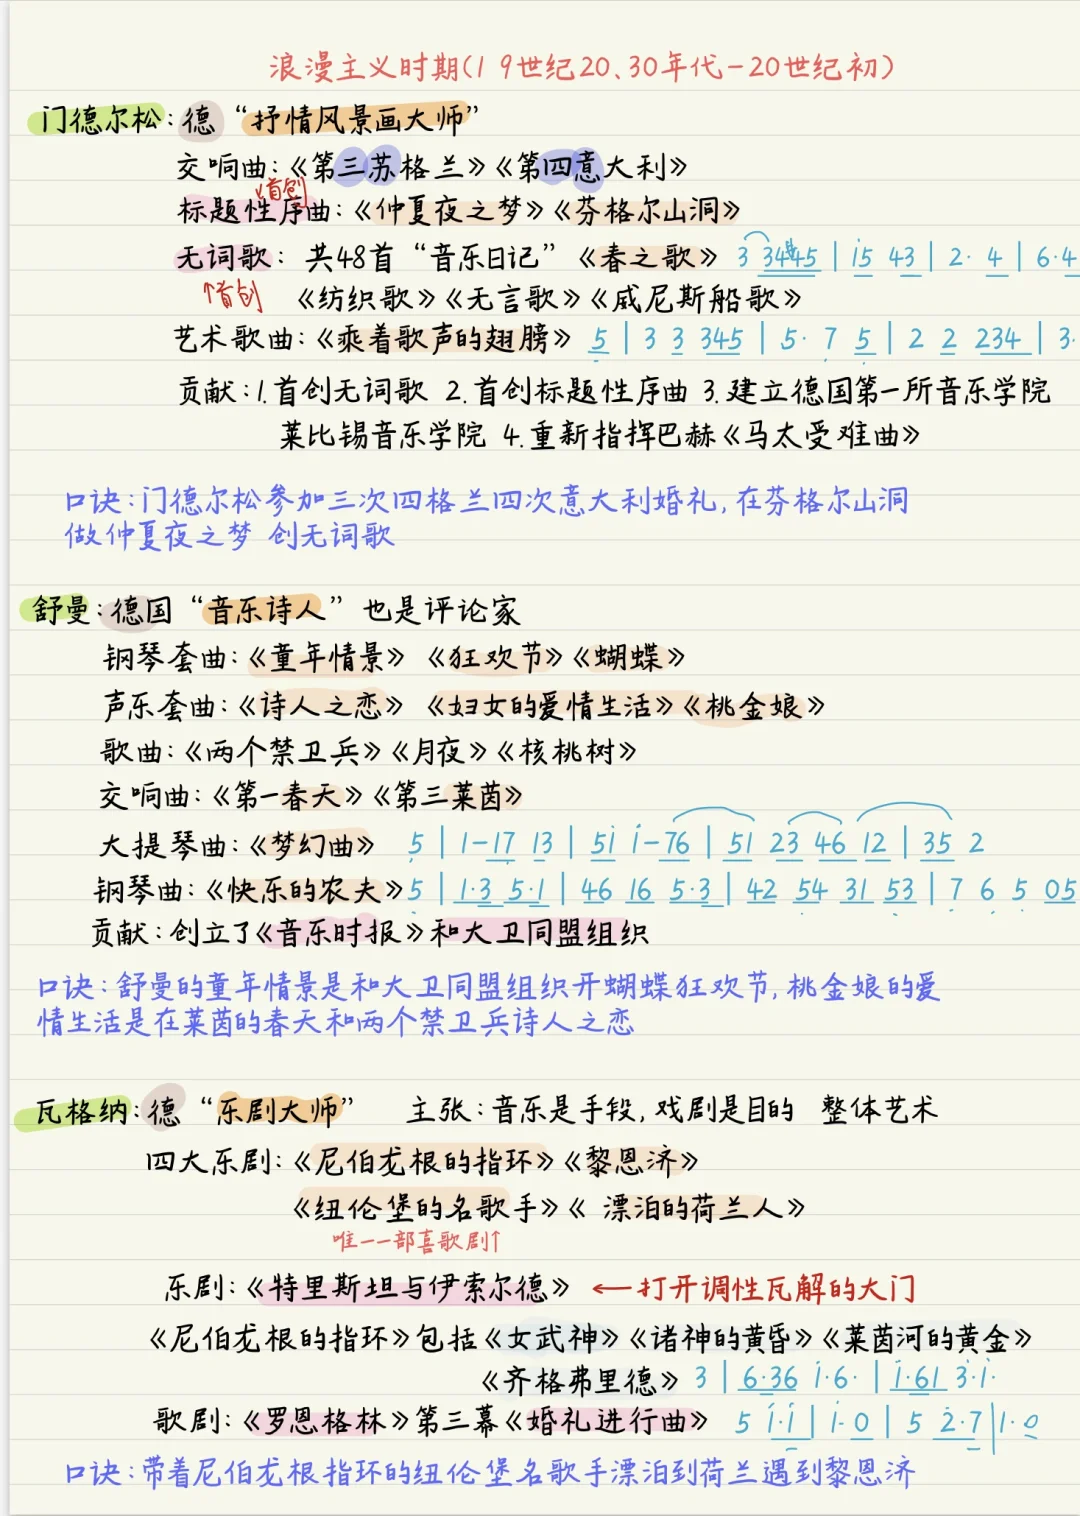 浪漫主义时期(19世纪20、30年代-20世纪初)
门德尔松:德 “抒情风景画大师”
交响曲:《第三苏格兰》《第四意大利》
首创
标题性序曲:《仲夏夜之梦》《芬格尔山洞》
无词歌: 共48首 “音乐日记” 《春之歌》 3 34#45 | i5 43 | 2· 4 | 6·4
↑首创 《纺织歌》《无言歌》《威尼斯船歌》
艺术歌曲:《乘着歌声的翅膀》 5 | 3 3 345 | 5· 7 5 | 2 2 234 | 3·
贡献:1.首创无词歌 2.首创标题性序曲 3.建立德国第一所音乐学院
莱比锡音乐学院 4.重新指挥巴赫《马太受难曲》
口诀:门德尔松参加三次四格兰四次意大利婚礼,在芬格尔山洞
做仲夏夜之梦 创无词歌
舒曼:德国 “音乐诗人” 也是评论家
钢琴套曲:《童年情景》 《狂欢节》《蝴蝶》
声乐套曲:《诗人之恋》 《妇女的爱情生活》《桃金娘》
歌曲:《两个禁卫兵》《月夜》《核桃树》
交响曲:《第一春天》《第三莱茵》
大提琴曲:《梦幻曲》 5 | 1-17 13 | 5i i-76 | 51 23 46 12 | 35 2
钢琴曲:《快乐的农夫》5 | 1·3 5·1 | 46 16 5·3 | 42 54 31 53 | 7 6 5 05
贡献:创立了《音乐时报》和大卫同盟组织
口诀:舒曼的童年情景是和大卫同盟组织开蝴蝶狂欢节,桃金娘的爱
情生活是在莱茵的春天和两个禁卫兵诗人之恋
瓦格纳:德 “乐剧大师” 主张:音乐是手段,戏剧是目的 整体艺术
四大乐剧:《尼伯龙根的指环》《黎恩济》
《纽伦堡的名歌手》《 漂泊的荷兰人》
唯一一部喜歌剧↑
乐剧:《特里斯坦与伊索尔德》 ←打开调性瓦解的大门
《尼伯龙根的指环》包括《女武神》《诸神的黄昏》《莱茵河的黄金》
《齐格弗里德》 3 | 6·36 i·6· | i·61 3·i·
歌剧:《罗恩格林》第三幕《婚礼进行曲》 5 i·i | i· 0 | 5 2·7 | 1· 0
口诀:带着尼伯龙根指环的纽伦堡名歌手漂泊到荷兰遇到黎恩济